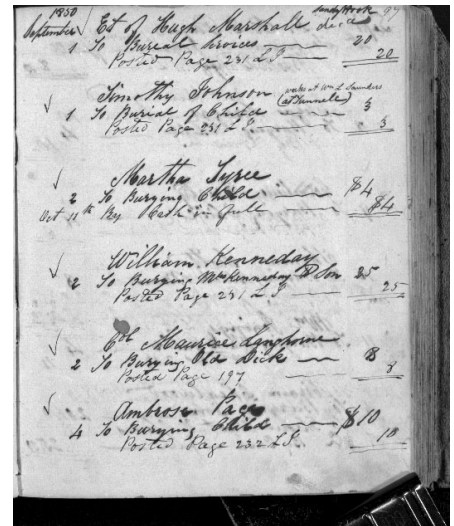 1850 Sandy Hook 97
September Est of Hugh Marshall decd
1 To Bureal Services 20
Posted Page 231 L S 20
Timothy Johnson (works at Wm L Saunders
1 To Burial of Child (at Tunnele) 3
Posted Page 231 L S 3
Martha Tyree
2 To Burying Child $4
Oct 11th By Cash in full $4
William Kenneday
2 To Burying Mrs Kenneday & Son 25
Posted Page 231 L S 25
Col Maurice Langhorne
2 To Burying Old Dick 8
Posted Page 197 8
Ambrose Page
4 To Burying Child $10
Posted Page 232 L S. 10